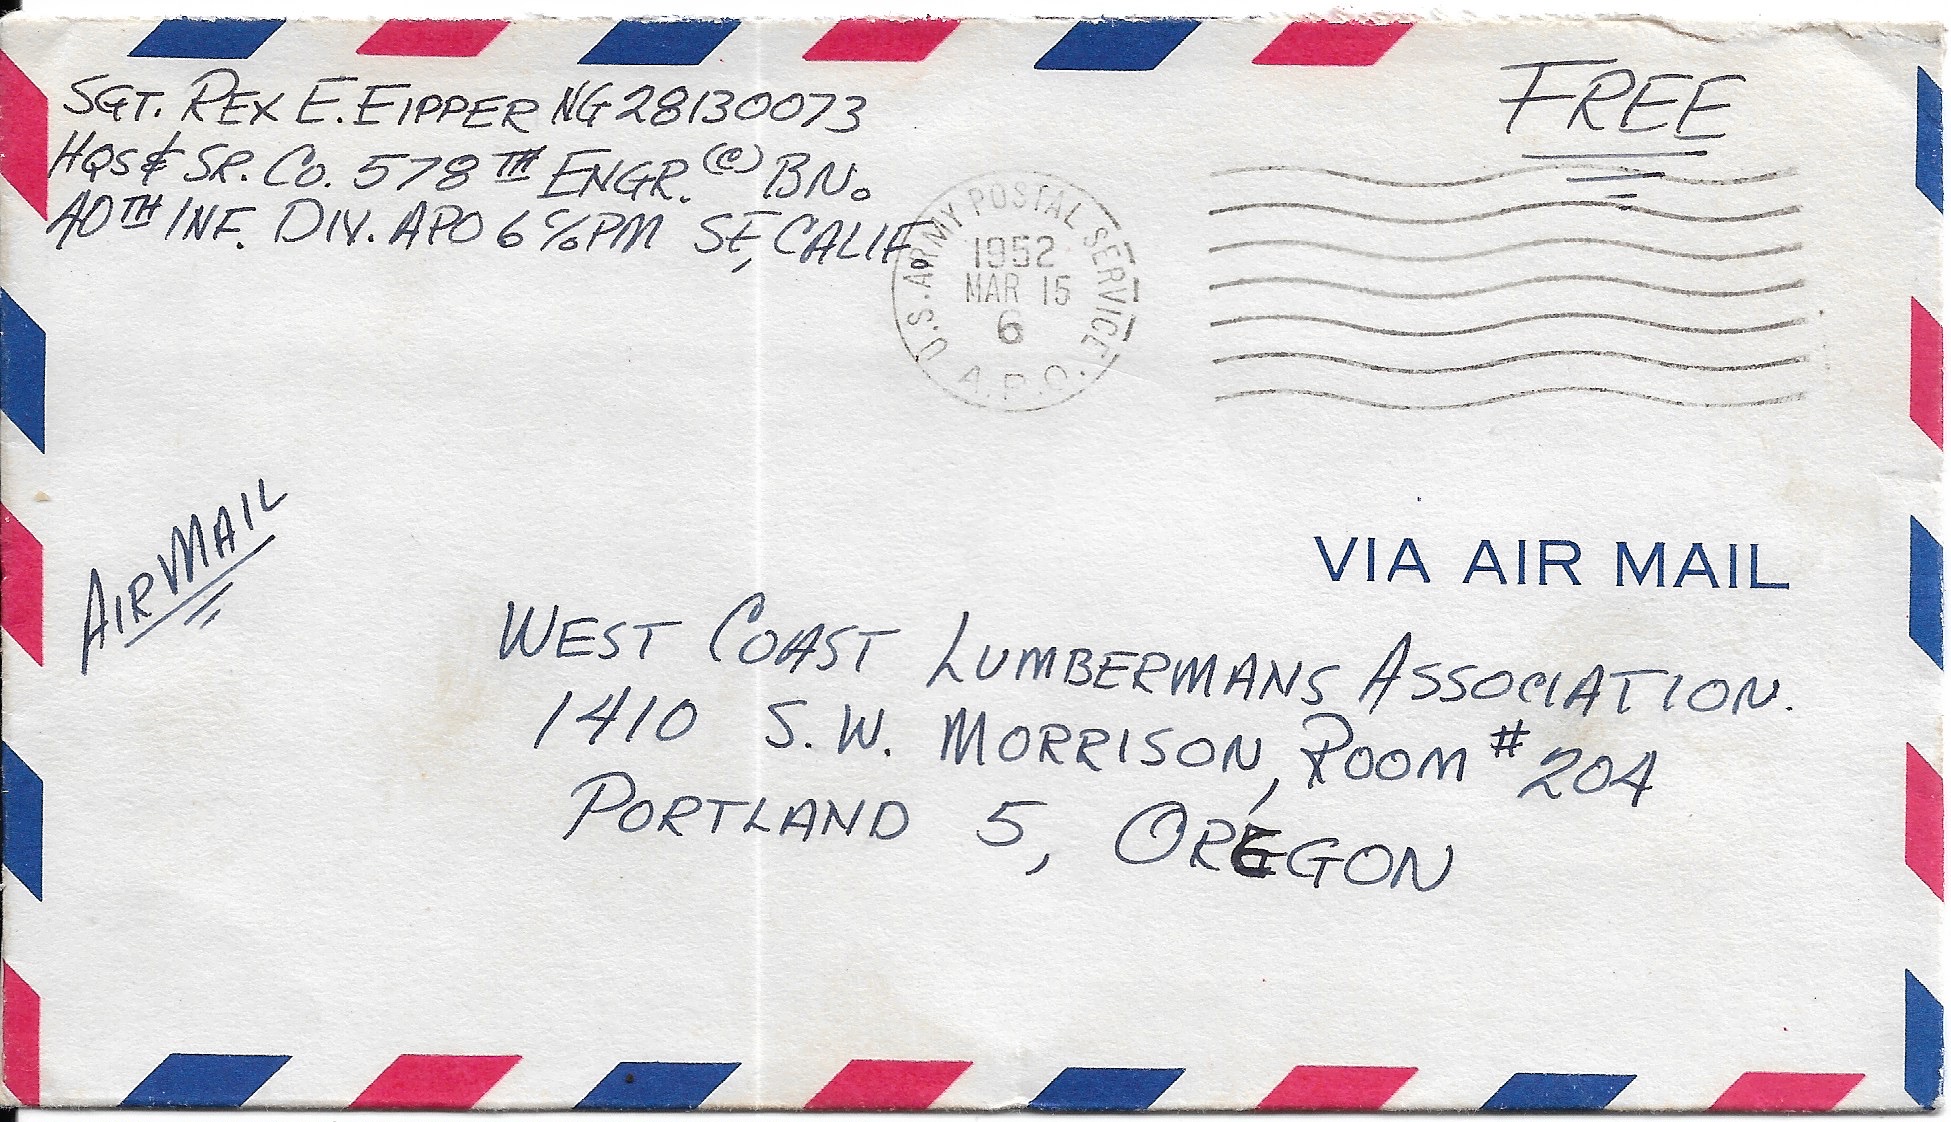 SGT. REX E. EIPPER NG28130073
HQS & SR. CO. 578TH ENGR. (C) BN.
40TH INF. DIV. APO 6 c/o PM SF, CALIF.
FREE
U.S. ARMY POSTAL SERVICE
1952
MAR 15
6
A.P.O.
AIRMAIL
VIA AIR MAIL
WEST COAST LUMBERMANS ASSOCIATION.
1410 S.W. MORRISON, ROOM #204
PORTLAND 5, OREGON